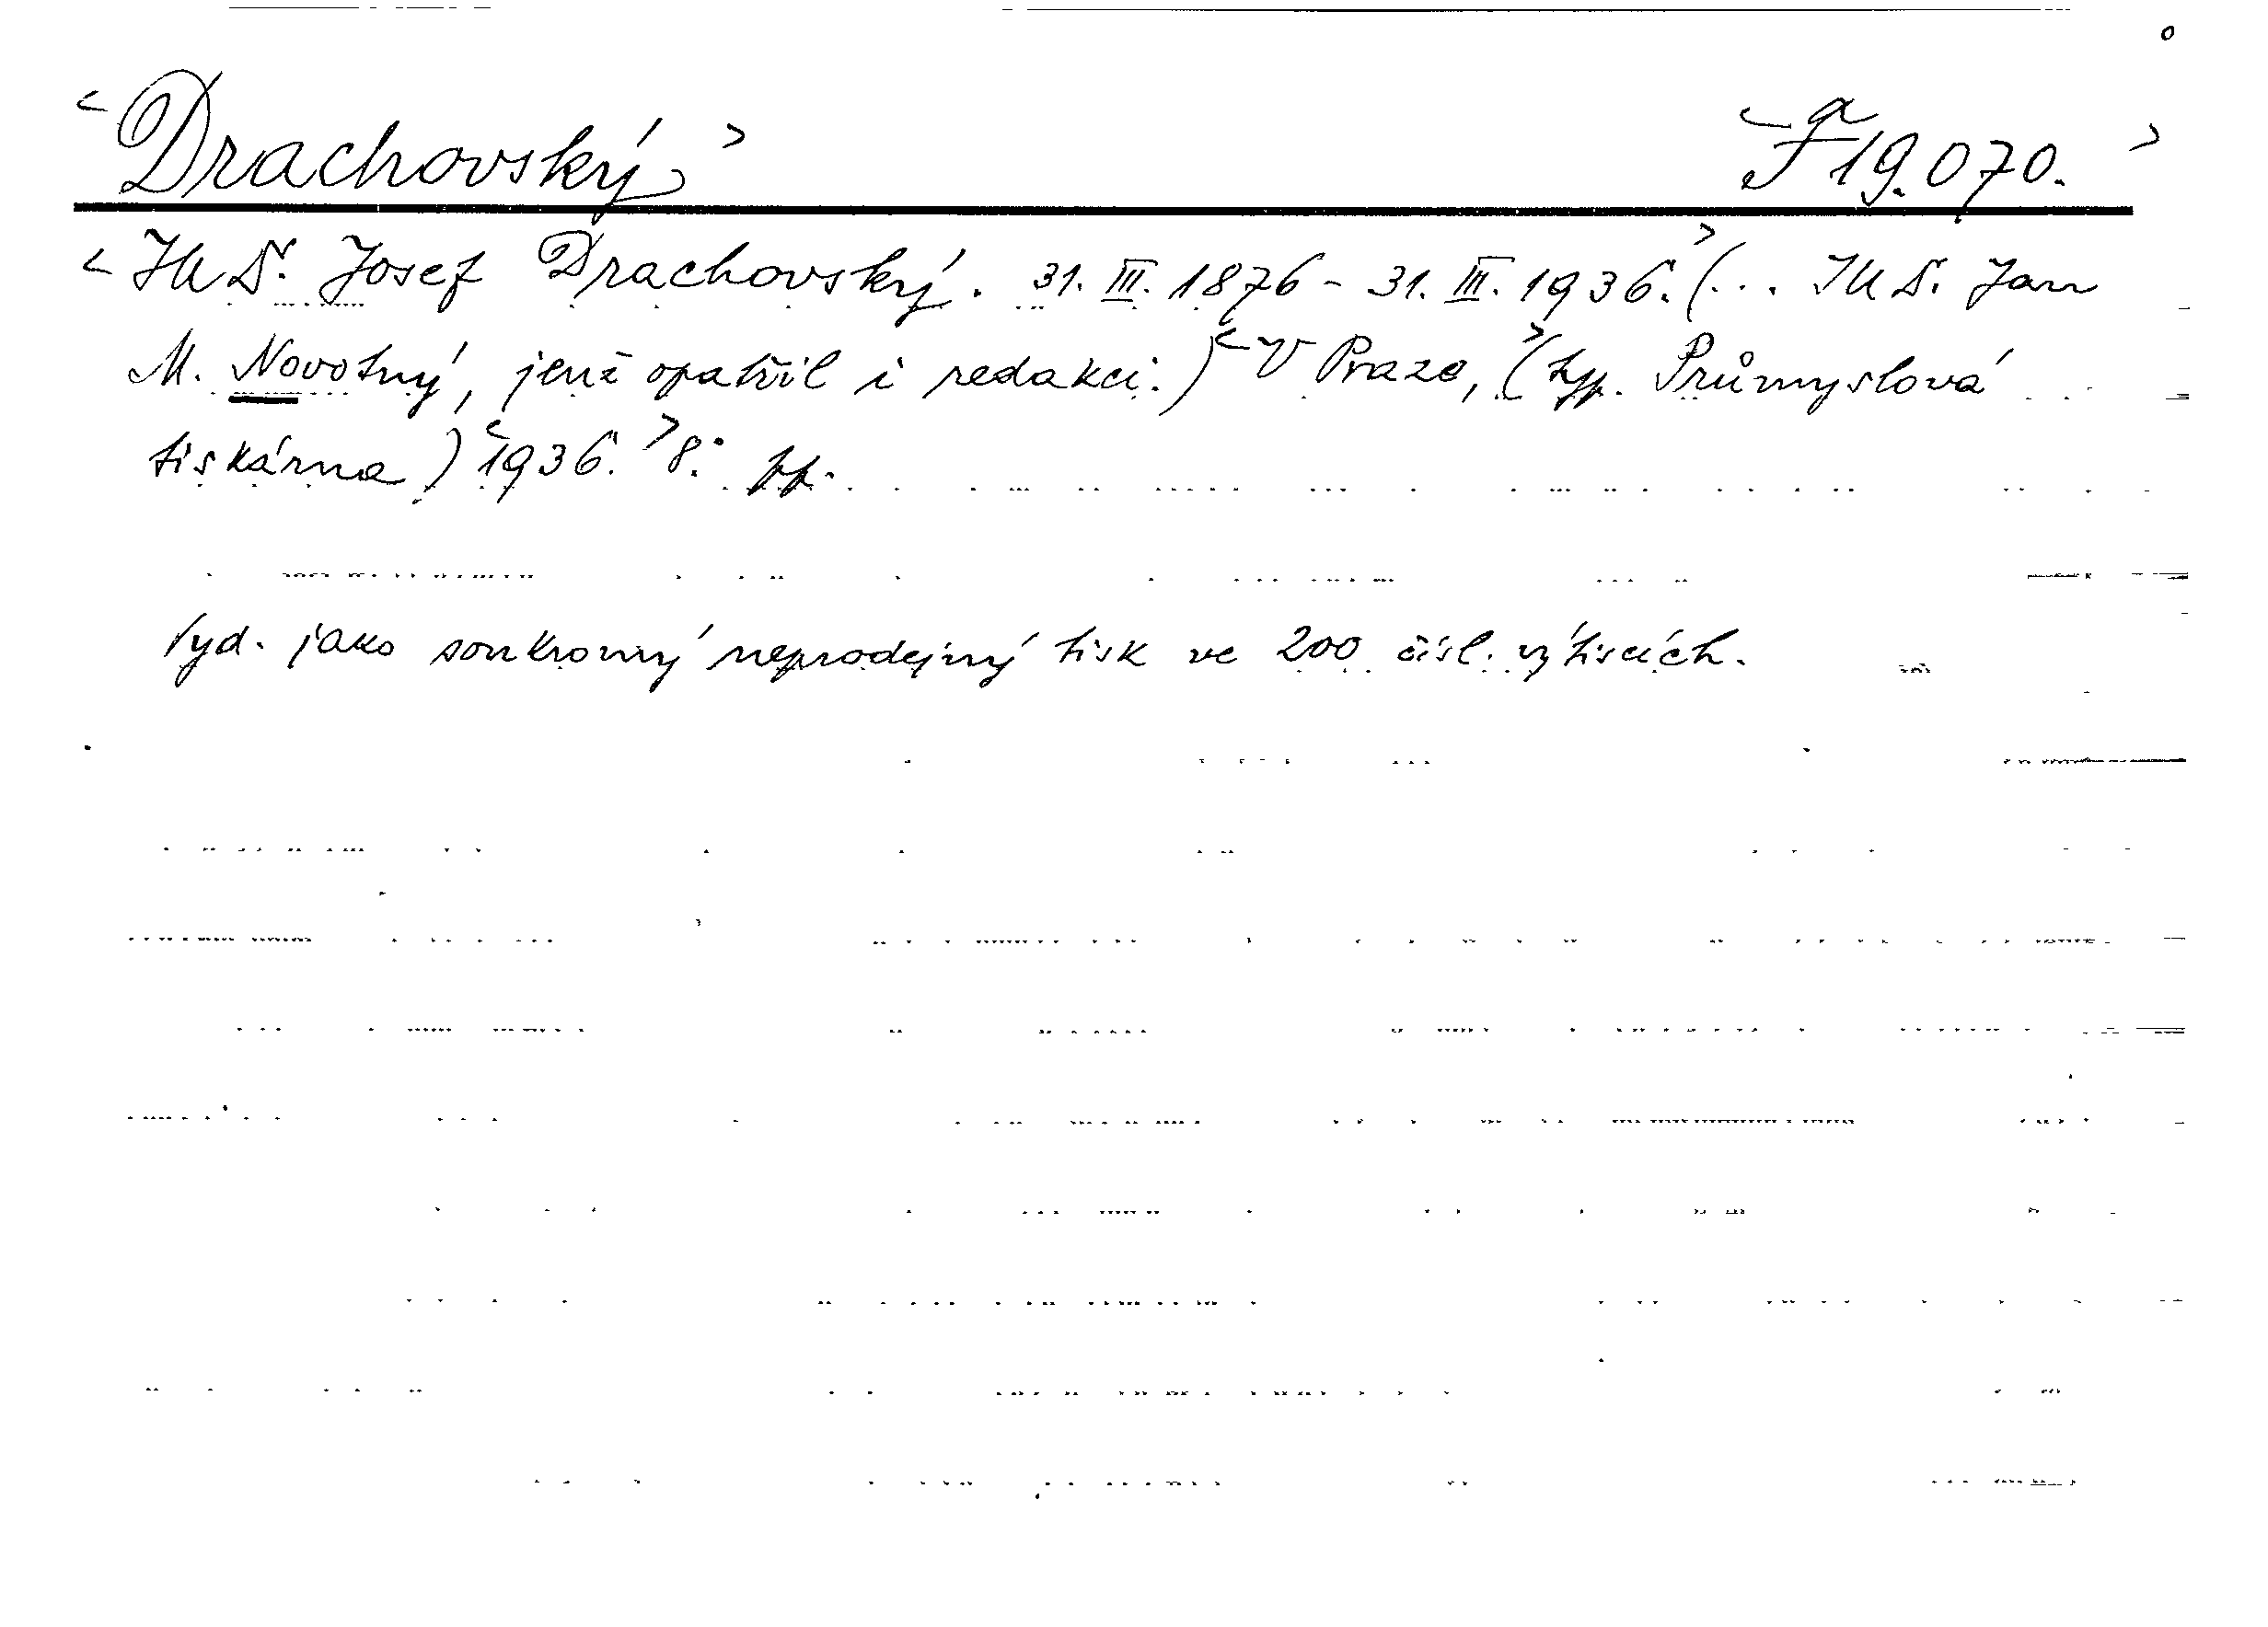 <Drachovský> <F a 19.070.>
<JUDr. Josef Drachovský. 31. III. 1876 - 31. III. 1936.> (... JUDr. Jan
M. Novotný, jenž opatřil i redakci.) <V Praze,> (typ. Průmyslová
tiskárna) <1936.> 8°. pp.
Vyd. jako soukromý neprodejný tisk ve 200 čísl. výtiscích.